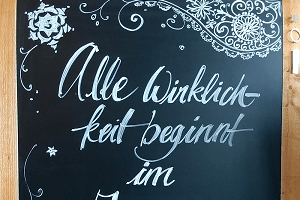 Alle Wirklich-
keit beginnt
im